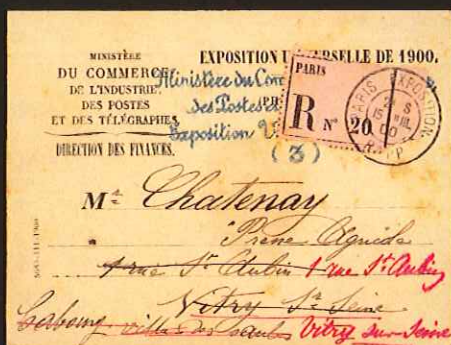 MINISTÈRE
DU COMMERCE
DE L'INDUSTRIE,
DES POSTES
ET DES TÉLÉGRAPHES
DIRECTION DES FINANCES.
EXPOSITION UNIVERSELLE DE 1900.
Ministère du Com
des Postes et
Exposition U
(3)
PARIS
R No 20
PARIS EXPOSITION
RAPP
Mr Chatenay
1 rue St Aubin 1 rue St Aubin
Vitry Sr Seine
Cabourg villa des Vitry sur Seine